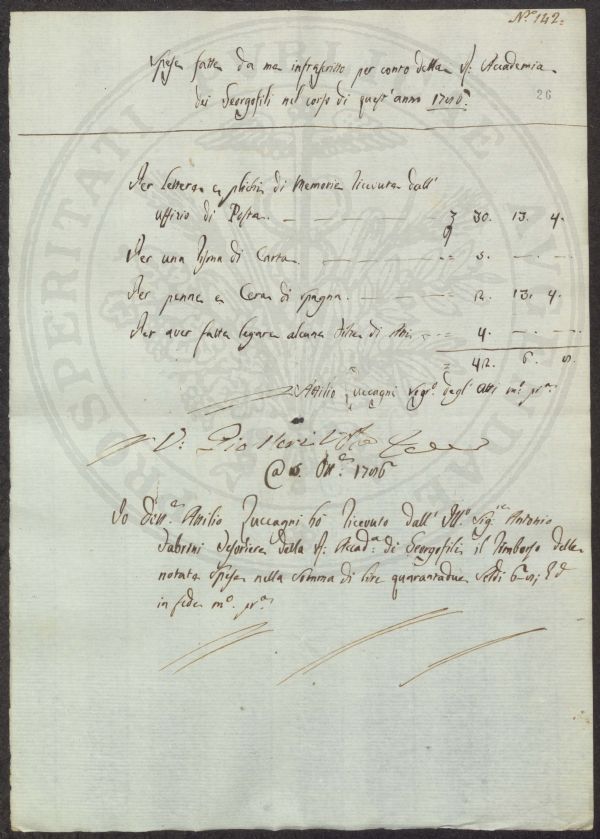 N.º 142=
Spese fatte da me infrascritto per conto della R: Accademia
dei Georgofili nel corso di quest'anno 1786.
26
Per lettere e plichi di Memorie ricevute dall'
uffizio di Posta — — — — 30. 13. 4.
Per una Risma di Carta — — — — = 5. — —
Per penne e Cera di Spagna — — — = 2. 13. 4.
Per aver fatte legare alcune filze di Atti — = 4. — —
= 42. 6. 8.
Attilio Zuccagni Segr.º degli Atti m.º pr.ª
V:
@ 1786
Io Dott.e Attilio Zuccagni hò ricevuto dall' Ill.º Sig.re Antonio
Fabrini Tesoriere della R: Accad.ª dei Georgofili il rimborso delle
notate Spese nella Somma di lire quarantadue Soldi 6 8; Ed
in fede m.º pr.ª
PROSPERITATI PUBLICAE AUGENDAE